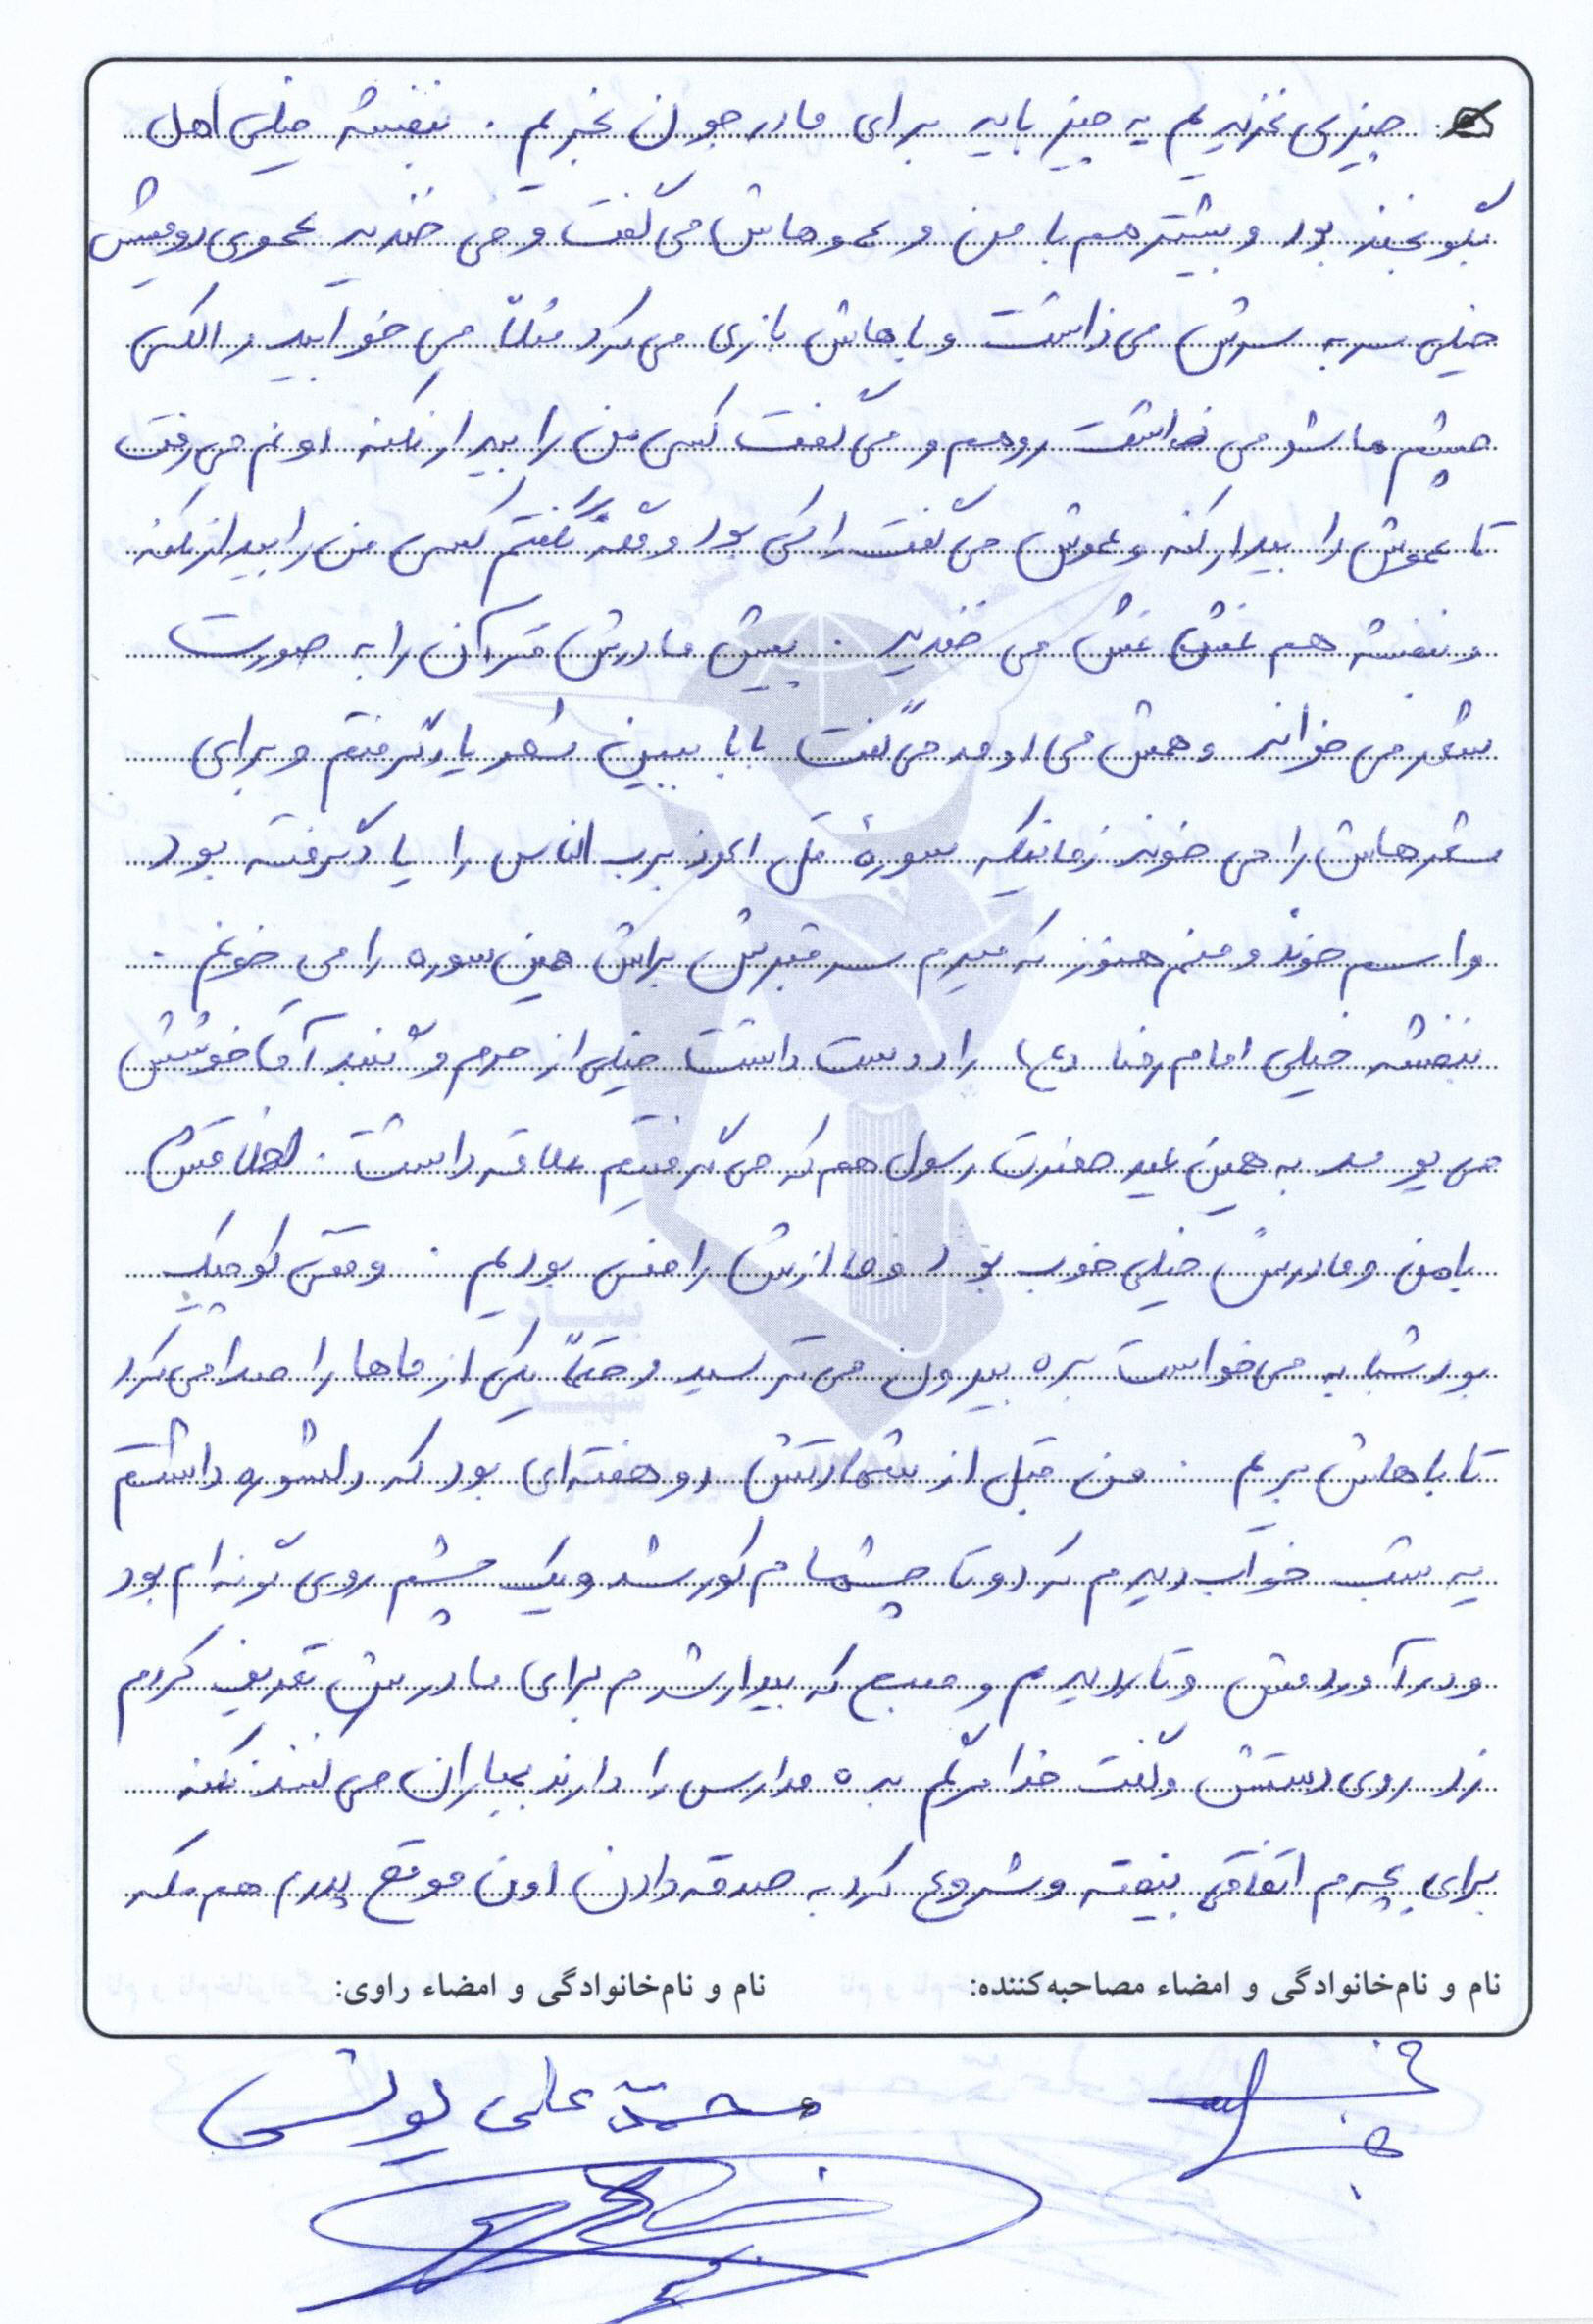 چیزی نخریدیم یه چیز باید برای مادر جون بخریم . بنفشه خیلی اهل
بگو بخند بود و بیشتر هم با من و عموهاش می گفت و می خندید عموی دومیش
خیلی سر به سرش می ذاشت و باهاش بازی می کرد مثلاً می خوابید و الکی
چشم هاشو می ذاشت رو هم و می گفت کسی من را بیدار نکنه اونم می رفت
تا عموش را بیدار کنه و عموش می گفت راکی بود وقتی گفتم کسی من را بیدار نکنه
و بنفشه هم غش غش می خندید . پیش مادرش قرآن را به صورت
شعر می خواند و همش می اومد می گفت بابا ببین شعر یاد گرفتم و برای
شعرهاش را می خوند زمانیکه سورهٔ قل اعوذ برب الناس را یاد گرفته بود
واسم خوند و منم هنوز که میرم سر قبرش براش همین سوره را می خونم .
بنفشه خیلی امام رضا (ع) را دوست داشت خیلی از حرم و گنبد آقا خوشش
می یومد به همین عید حضرت رسول هم که می گرفتیم علاقه داشت . اخلاقش
با من و مادرش خیلی خوب بود و ما ازش راضی بودیم . وقتی کوچیک
بود شبا که می خواست بره بیرون می ترسید و حتماً یکی از ماها را صدا می کرد
تا باهاش بریم . من قبل از شهادتش دو هفته ای بود که دلشوره داشتم
یه شب خواب دیدم که دو تا چشمام کور شد و یک چشم روی گونه ام بود
و در آوردمش و تار دیدم و صبح که بیدار شدم برای مادرش تعریف کردم
زد روی دستش و گفت خدا مرگم بده مدارس را دارند بمباران می کنند نکنه
برای بچه م اتفاقی بیفته و شروع کرد به صدقه دادن اون موقع پدرم هم مکه
نام و نام‌خانوادگی و امضاء مصاحبه‌کننده:
نام و نام‌خانوادگی و امضاء راوی:
محمّد علی یونسی